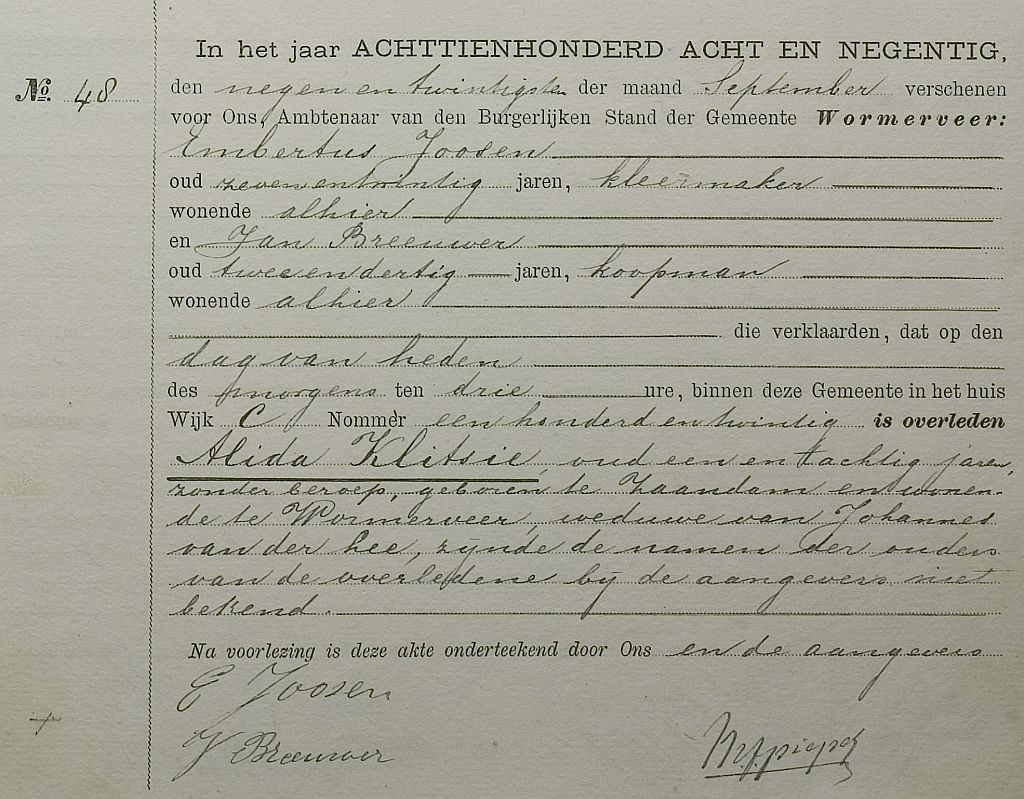 In het jaar ACHTTIENHONDERD ACHT EN NEGENTIG,
No. 48
den negen en twintigsten der maand September verschenen
voor Ons, Ambtenaar van den Burgerlijken Stand der Gemeente Wormerveer:
Embertus Joosen
oud zeven en twintig jaren, kleermaker
wonende alhier
en Jan Breeuwer
oud twee en dertig jaren, koopman
wonende alhier
die verklaarden, dat op den
dag van heden
des morgens ten drie ure, binnen deze Gemeente in het huis
Wijk C Nommer een honderd en twintig is overleden
Alida Klitsie, oud een en tachtig jaren,
zonder beroep, geboren te Zaandam en wonen-
de te Wormerveer, weduwe van Johannes
van der Lee, zijnde de namen der ouders
van de overledene bij de aangevers niet
bekend.
Na voorlezing is deze akte onderteekend door Ons en de aangevers
E Joosen
J Breeuwer